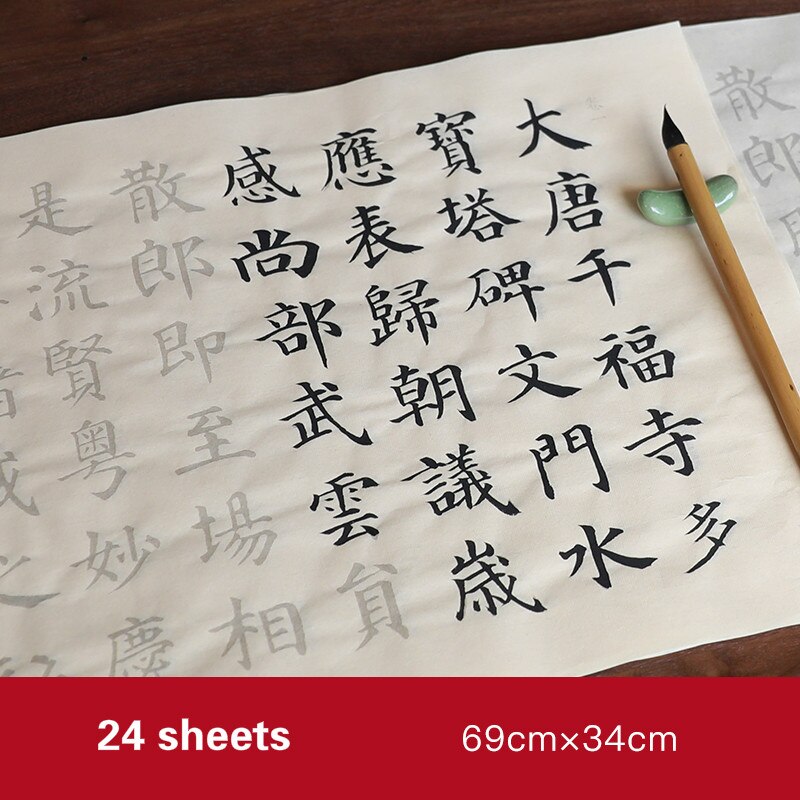 散郎
大唐千福寺多
寶塔碑文門水
應表歸朝議歳
感尚部武雲貟
散郎即至場相
是流賢粤妙慶
24 sheets
69cm×34cm